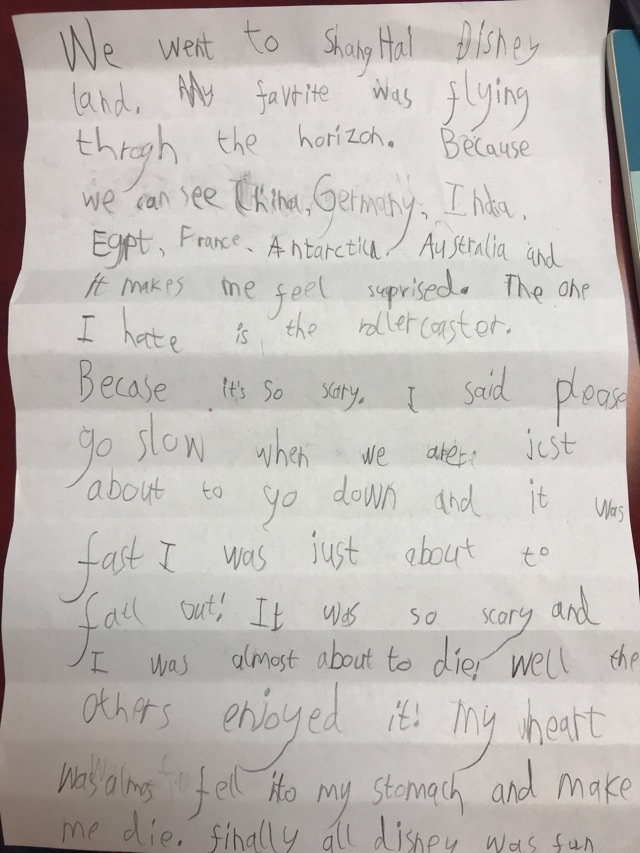 We went to ShangHai Disney
land. My favrite was flying
throgh the horizon. Because
we can see China, Germany, India,
Egpt, France, Antarctica, Australia and
it makes me feel suprised. The one
I hate is the rollercoaster.
Becase it's so scary. I said please
go slow when we are just
about to go down and it was
fast I was just about to
fall out! It was so scary and
I was almost about to die! well the
others enjoyed it! my heart
was almos fell ito my stomach and make
me die. finally all disney was fun